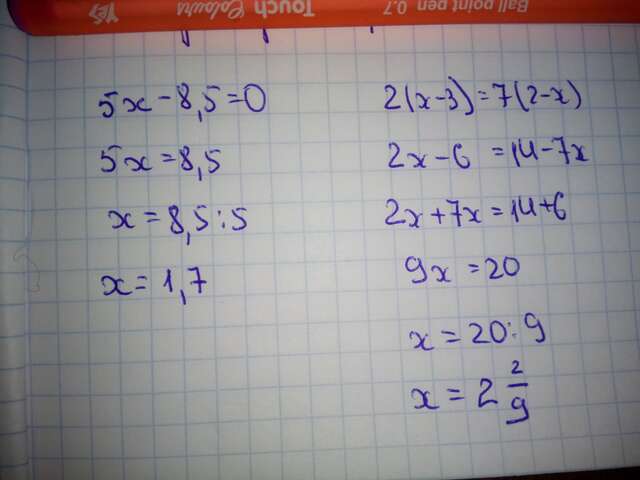 5x - 8,5 = 0
5x = 8,5
x = 8,5 : 5
x = 1,7
2(x-3) = 7(2-x)
2x - 6 = 14 - 7x
2x + 7x = 14 + 6
9x = 20
x = 20 : 9
x = 2 2/9
YES
Touch Colours
Ball point pen 0.7